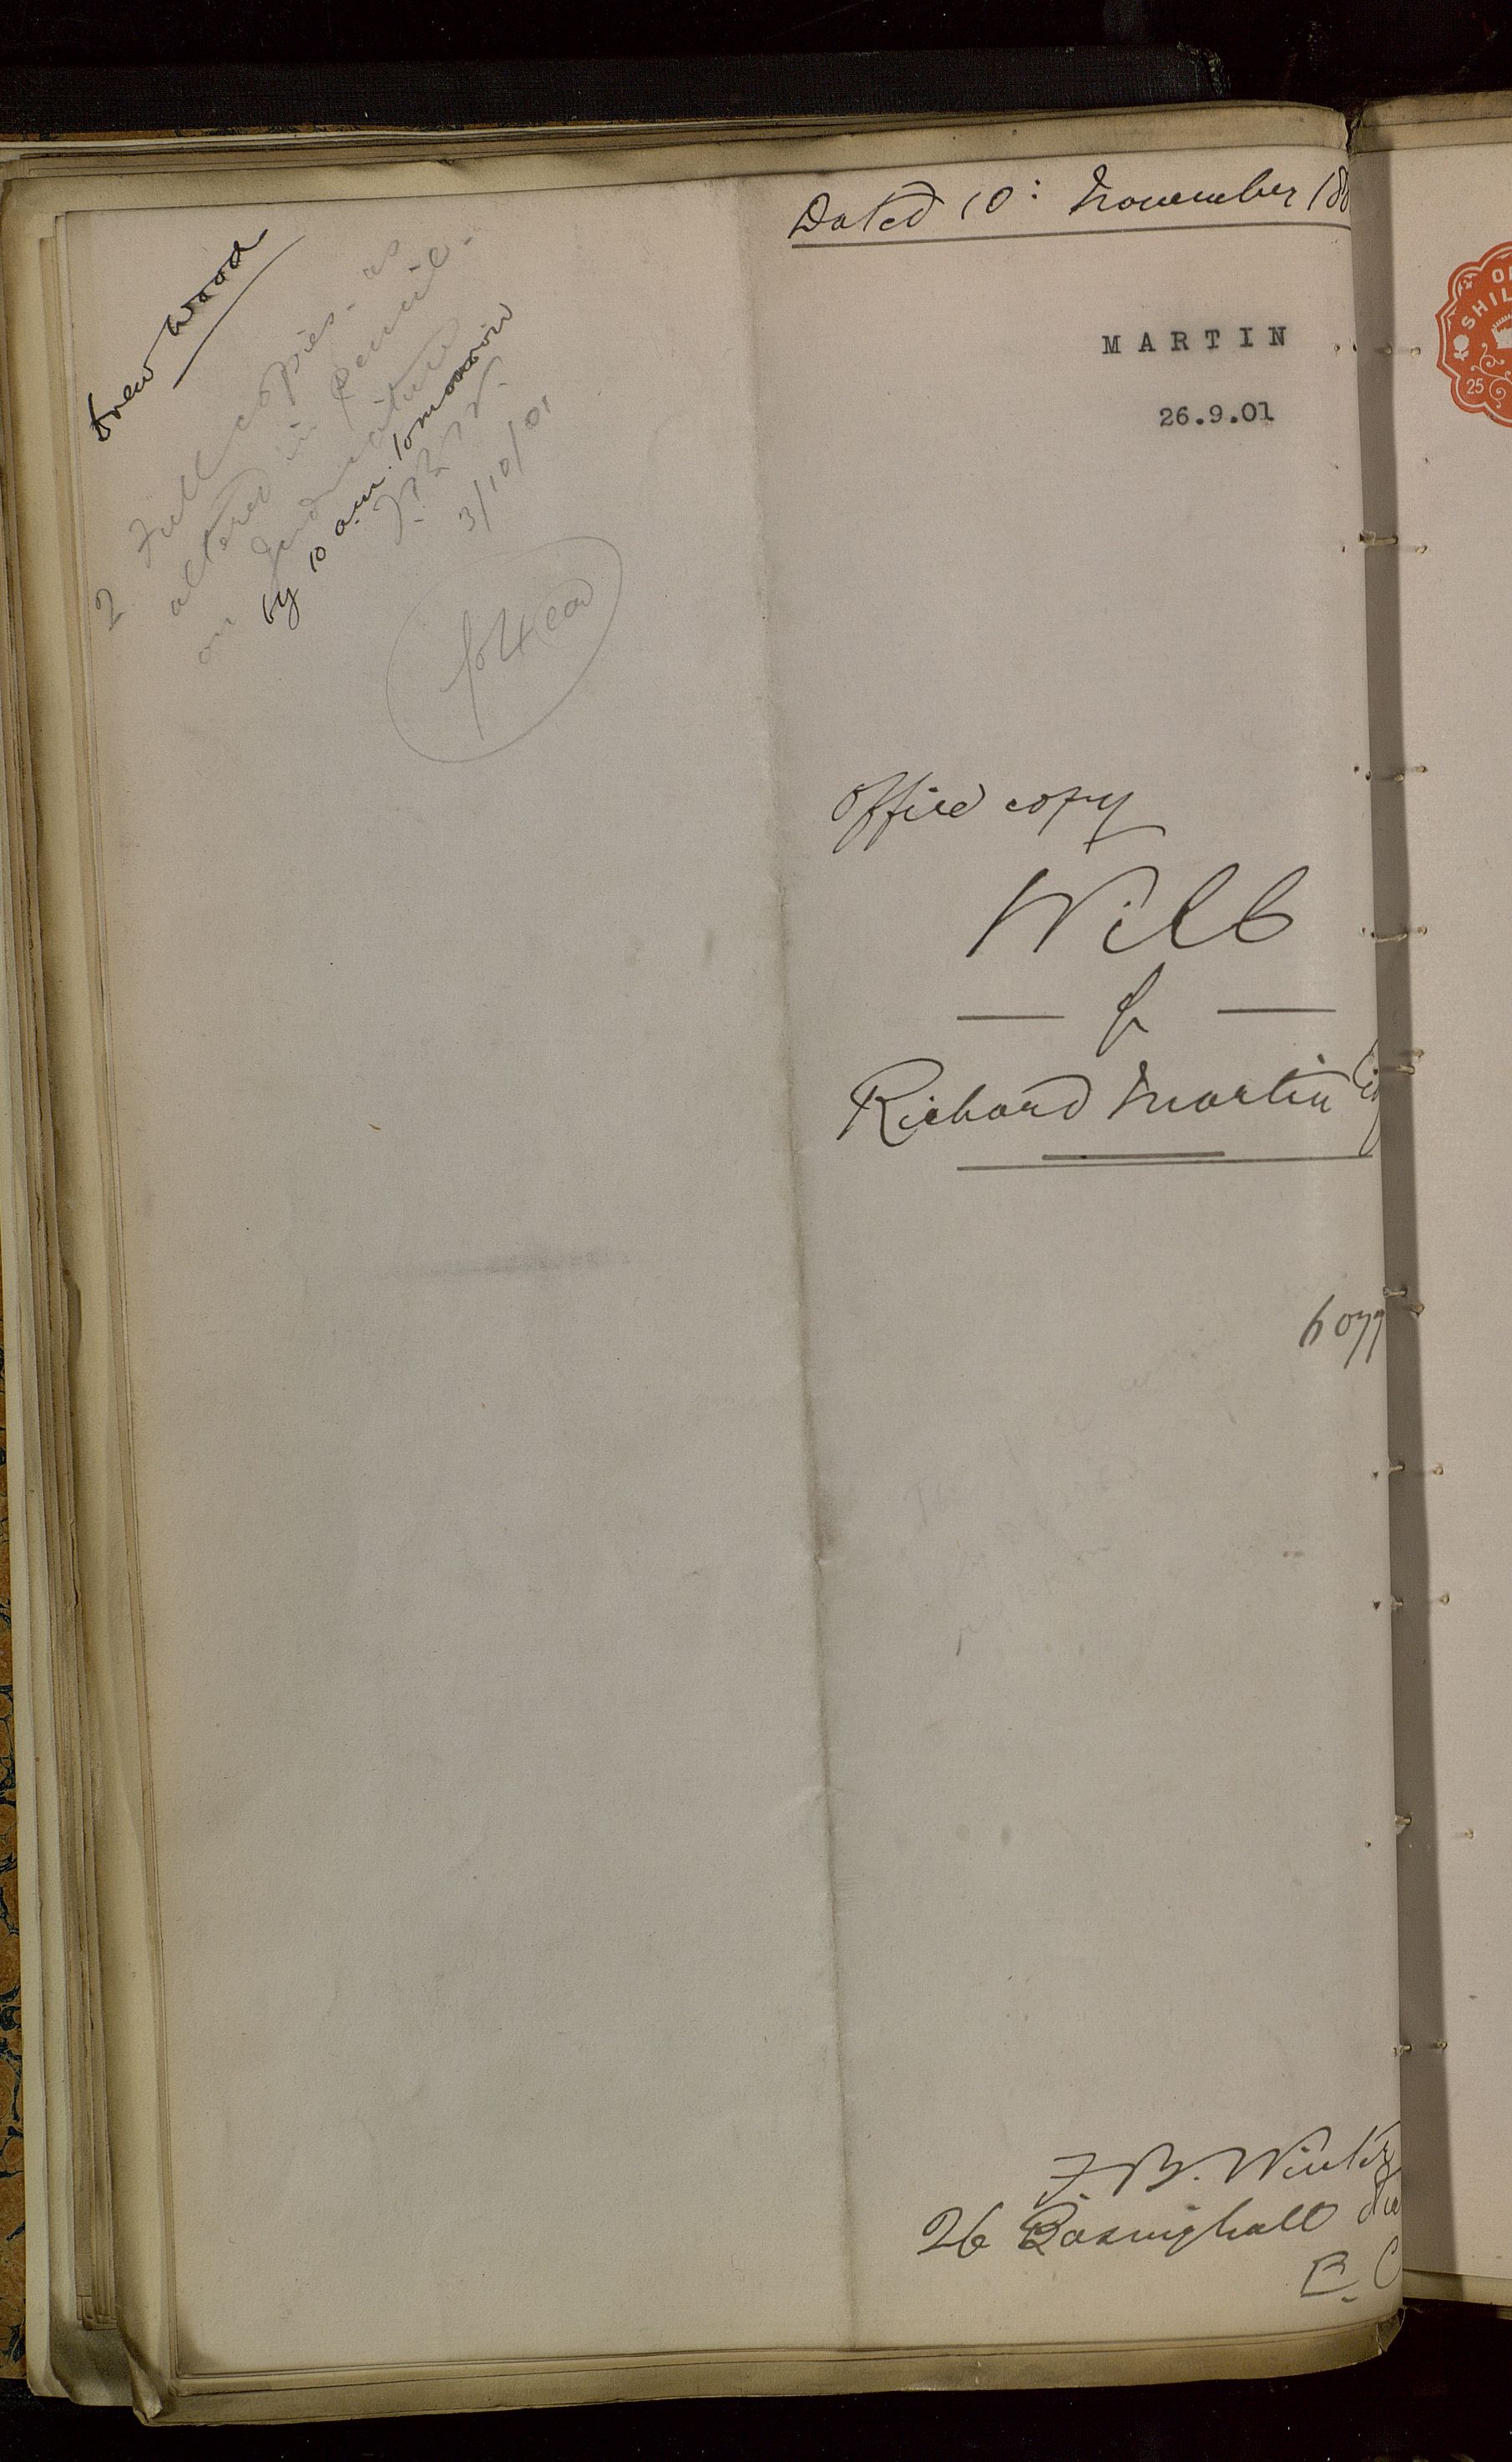 Drew Wood
2 Full copies - as
altered in pencil -
on Judicature
by 10 a.m. tomorrow
3/10/01
Dated 10: November 188
MARTIN
26.9.01
Office copy
Will
of
Richard Martin Esq
6077
F. B. Winter
26 Basinghall
E. C
O
SHIL
25